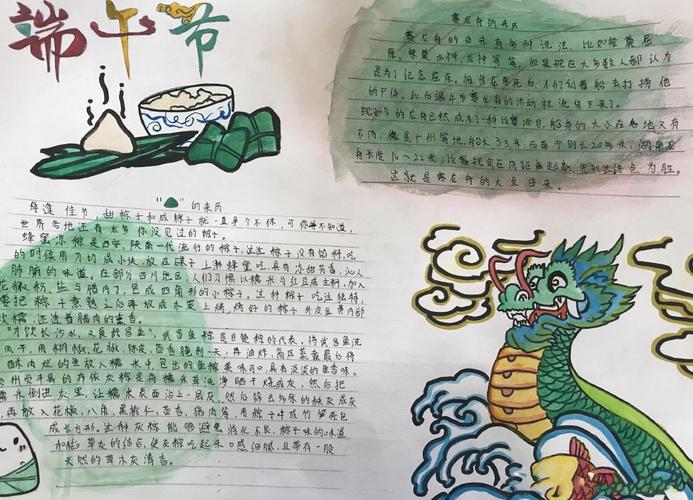 端午节
赛龙舟的来历
赛龙舟的由来有多种说法，比如祭曹
屈原、祭水神、龙神等等，但是现在大多数人都认为
是为了纪念屈原，相传屈原死后，人们划着船去打捞他
的尸体，此后端午节赛龙舟的活动就流传下来了。
现如今的龙舟已然成了一种比赛项目，船身的大小在各地又有
不同，像是广州等地，船长33米，而南宁则长20多米，湖南龙
舟长度16～22米，比赛规定在同距离起划，先到终点为胜。
这就是赛龙舟的大致由来。
"的来历
每逢佳节，甜粽子和咸粽子就一直争个不休，可你并不知道，
世界各地还有太多你没见过的粽子。
蜂蜜凉粽是西安，陕南一代流行的粽子，这些粽子没有馅料，吃
的时候用刀切成小块，放在碟子上淋蜂蜜吃，具有凉甜芳香，沁人
肺腑的味道。在部分四川地区，人们习惯以糯米与红豆成主料，加入
花椒粉、盐与腊肉丁，包成四角形的小粽子，这种粽子吃法独特，
要把粽子煮熟之后再放成木炭上烧，烤好的粽子外皮
软糯，还透着腊肉的熏香。
"才饮长沙水，又食武昌鱼"，武昌鱼粽是日
风干，用胡椒、花椒、陈皮、茴香腌制一天，再油炸，高压蒸煮最后将
酥肉烂的鱼放入糯米中包出的鱼粽美味可口，具有淡淡的鱼香味。
米倒进灰里，让糯米表面沾上一层灰，然后筛去多余的秧灰成灰
，再放入花椒，八角，果桃仁，茴香，猪肉等，用粽子叶或竹笋壳包
成长方形，这种灰粽能够避免消化不良，粽子味的味道
和稻草灰的结合，使灰粽吃起来口感细腻，且带有一股
天然的草木灰清香。